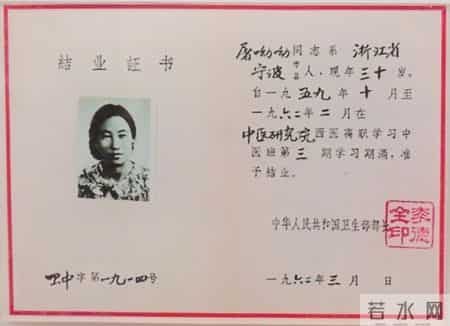 结业证书
四中字第一九一四号
屠呦呦同志系浙江省
宁波市县人，现年三十岁。
自一九五九年十月至
一九六二年二月在
中医研究院西医离职学习中
医班第三期学习期满，准
予结业。
中华人民共和国卫生部部长
李德全印
一九六二年三月 日
若水网